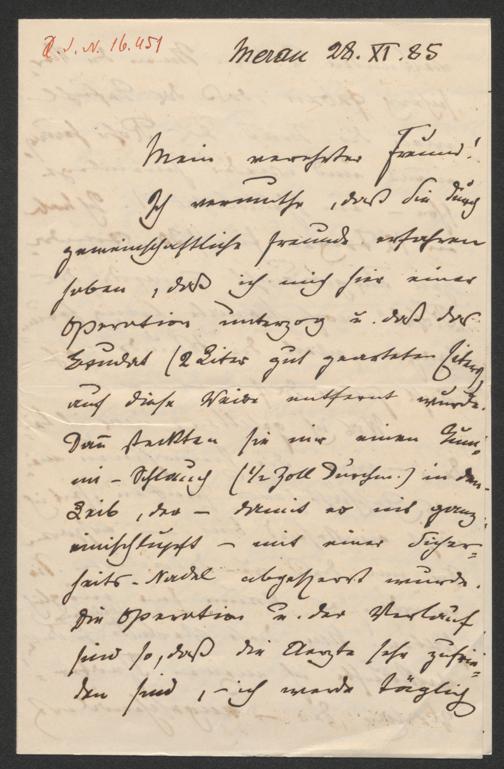 I. N. 16.451
Meran 28. XI. 85
Mein verehrter Freund!
Ich vermuthe, daß Sie durch
gemeinschaftliche Freunde erfahren
haben, daß ich mich hier einer
Operation unterzog u. daß das
Exsudat (2 Liter gut gearteten Eiters)
auf diese Weise entfernt wurde.
Dann steckten sie mir einen Gum-
mi-Schlauch (1/2 Zoll Durchm.) in den
Leib, der – damit er nit ganz
einischlupft – mit einer Sicher-
heits-Nadel abgesperrt wurde.
Die Operation u. der Verlauf
sind so, daß die Aerzte sehr zufrie-
den sind, – ich werde täglich